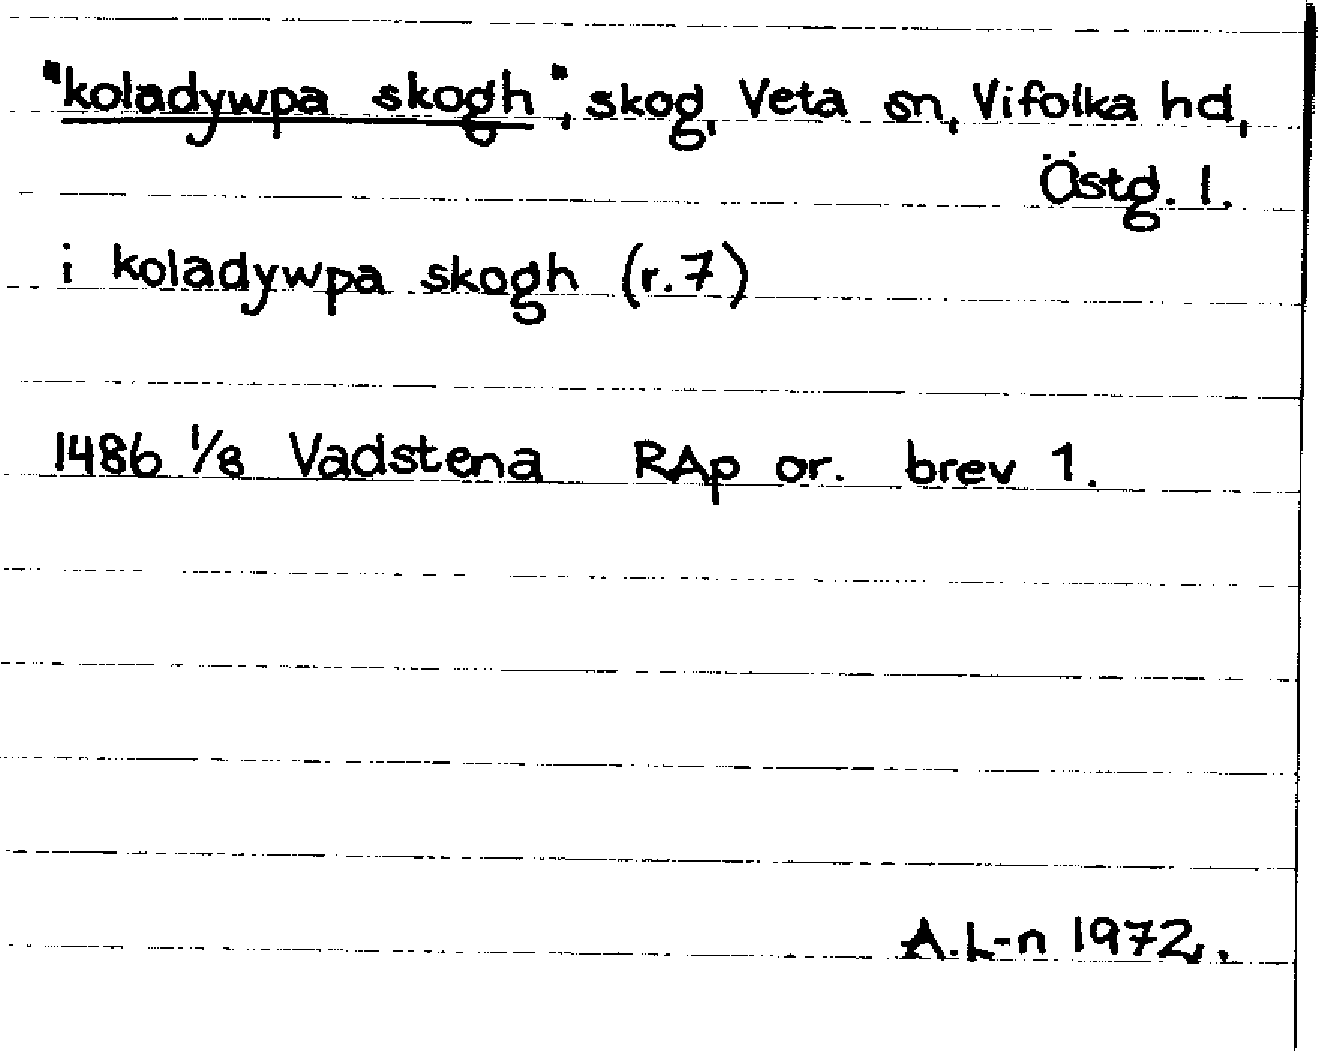 "koladywpa skogh", skog, Veta sn, Vifolka hd,
Östg. l.
i koladywpa skogh (r.7)
1486 1/8 Vadstena RAp or. brev 1.
A.L-n 1972.